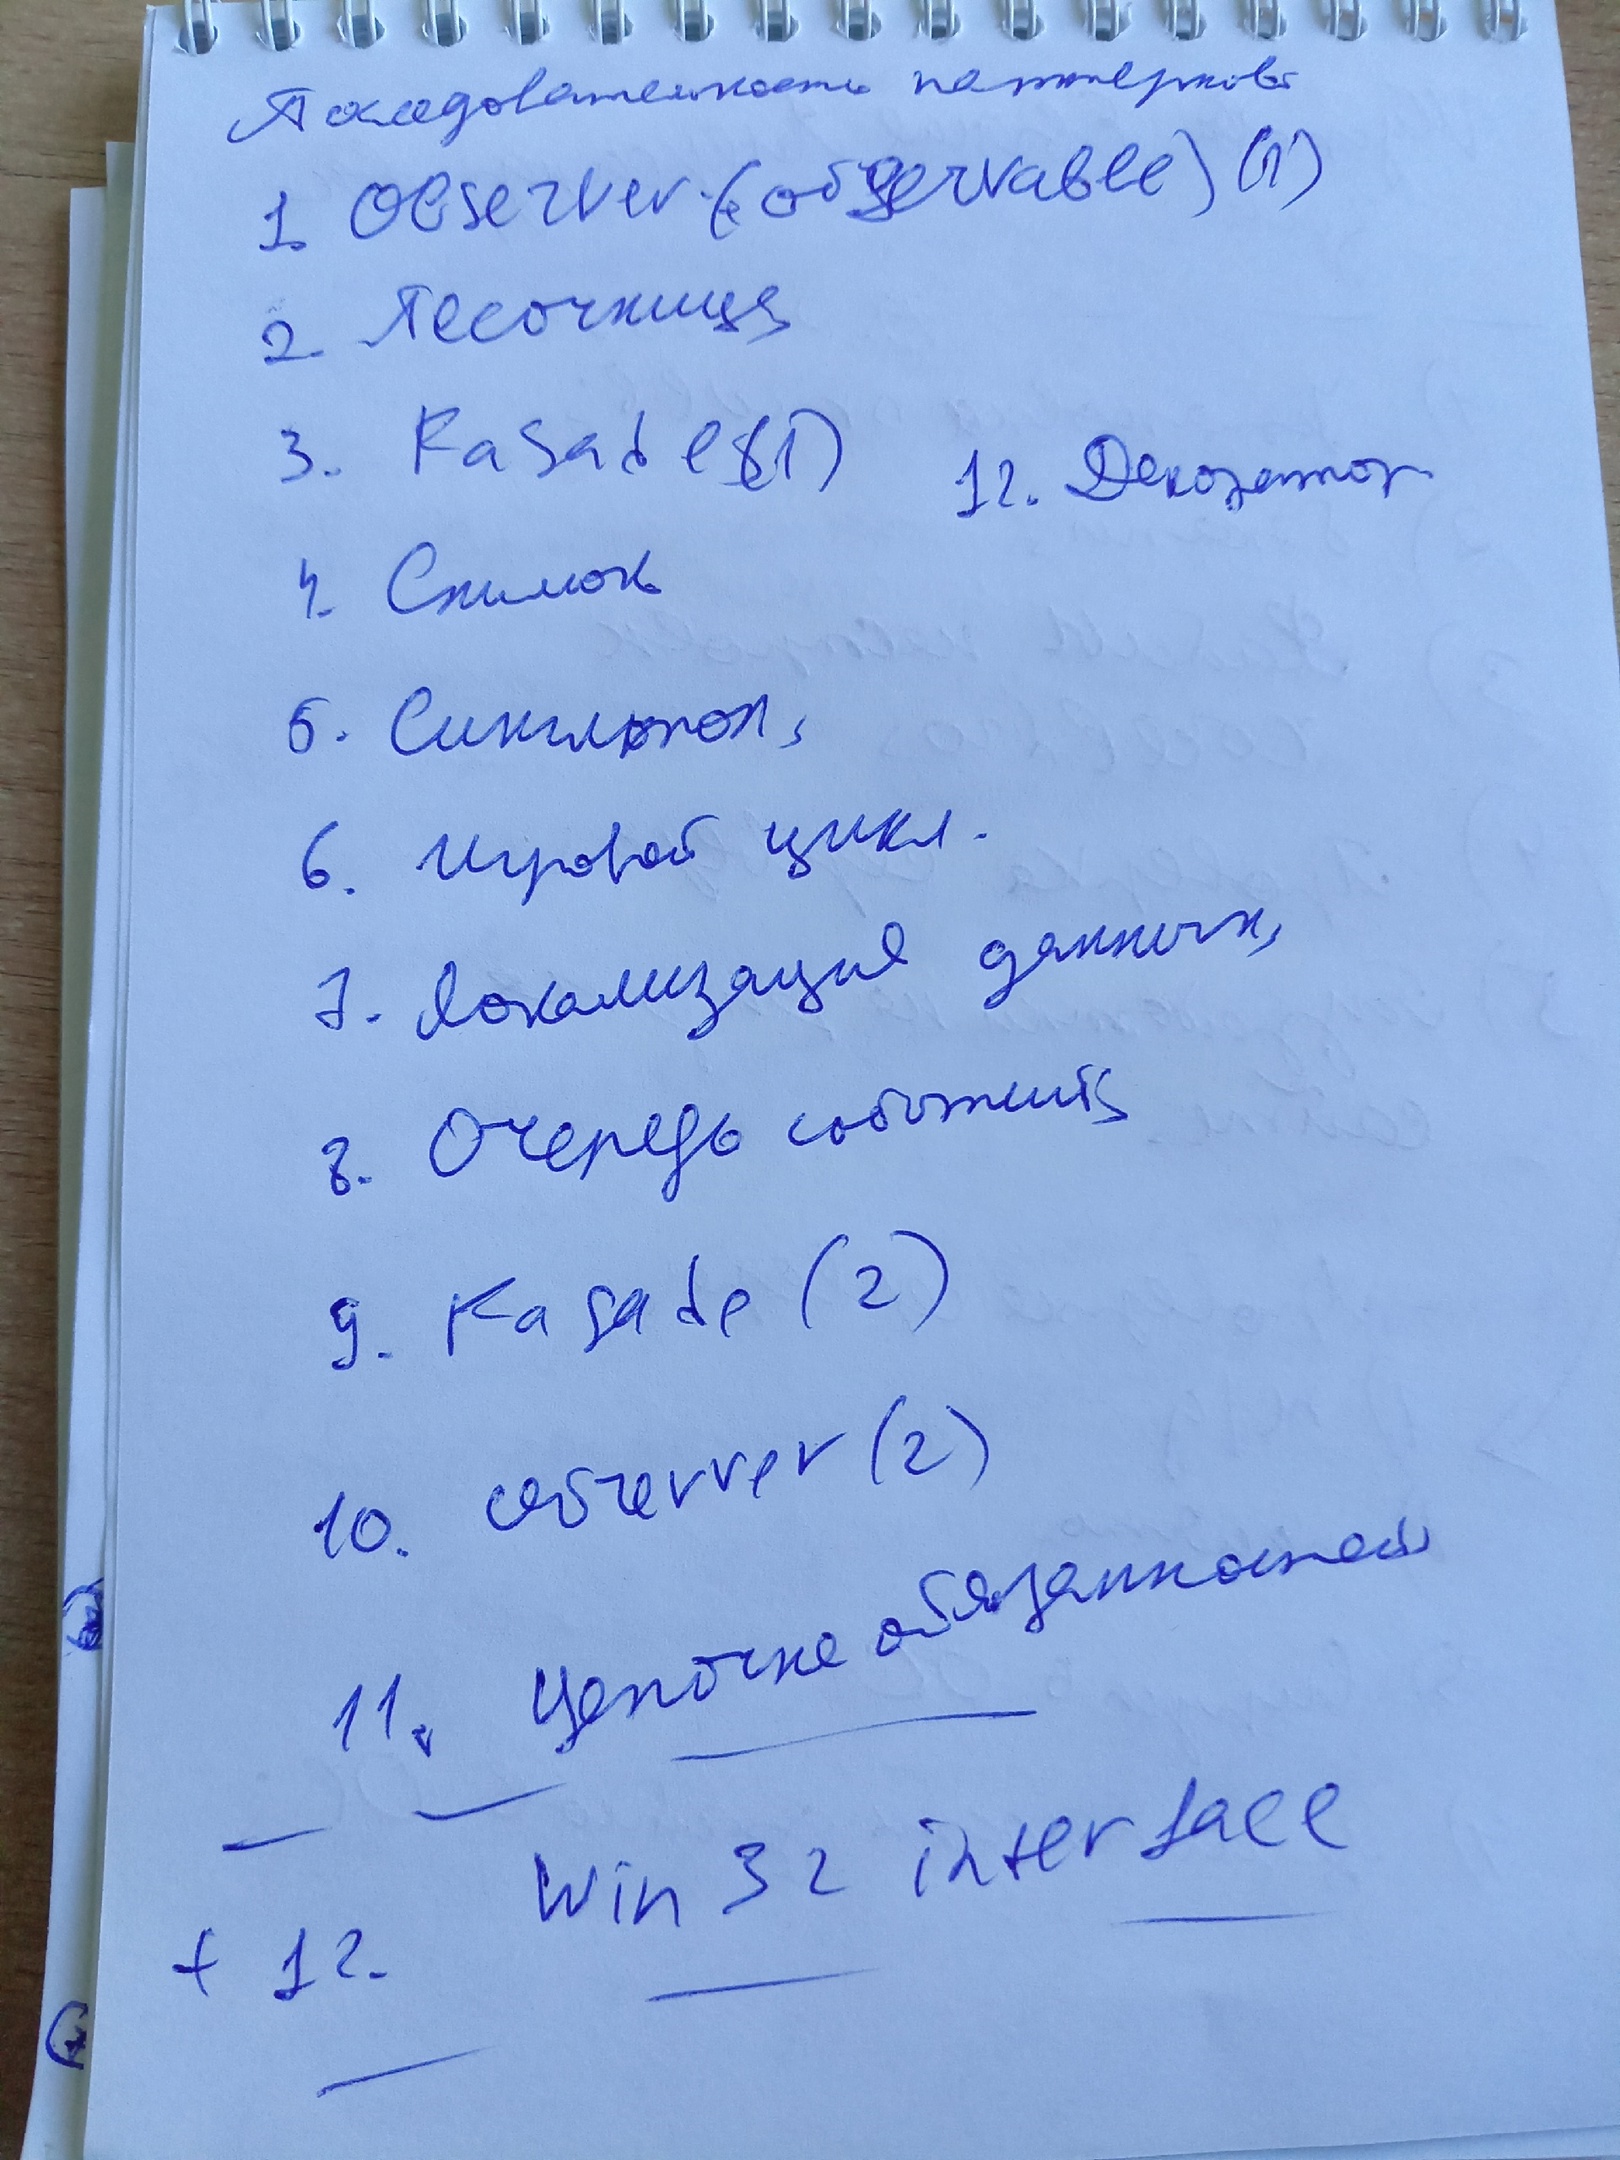 Последовательность паттернов
1. Observer (observable) (1)
2. Песочница
3. Fasade (1)
12. Декоратор
4. Снимок
5. Синглтон,
6. Игровой цикл.
7. Локализация данных,
8. Очередь событий
9. Fasade (2)
10. Observer (2)
11. Цепочка обязанностей
+ 12. Win 32 interface